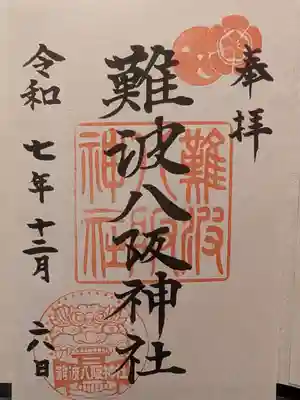 奉拝
難波八阪神社
難波八阪神社
令和七年十二月六日
難波八阪神社